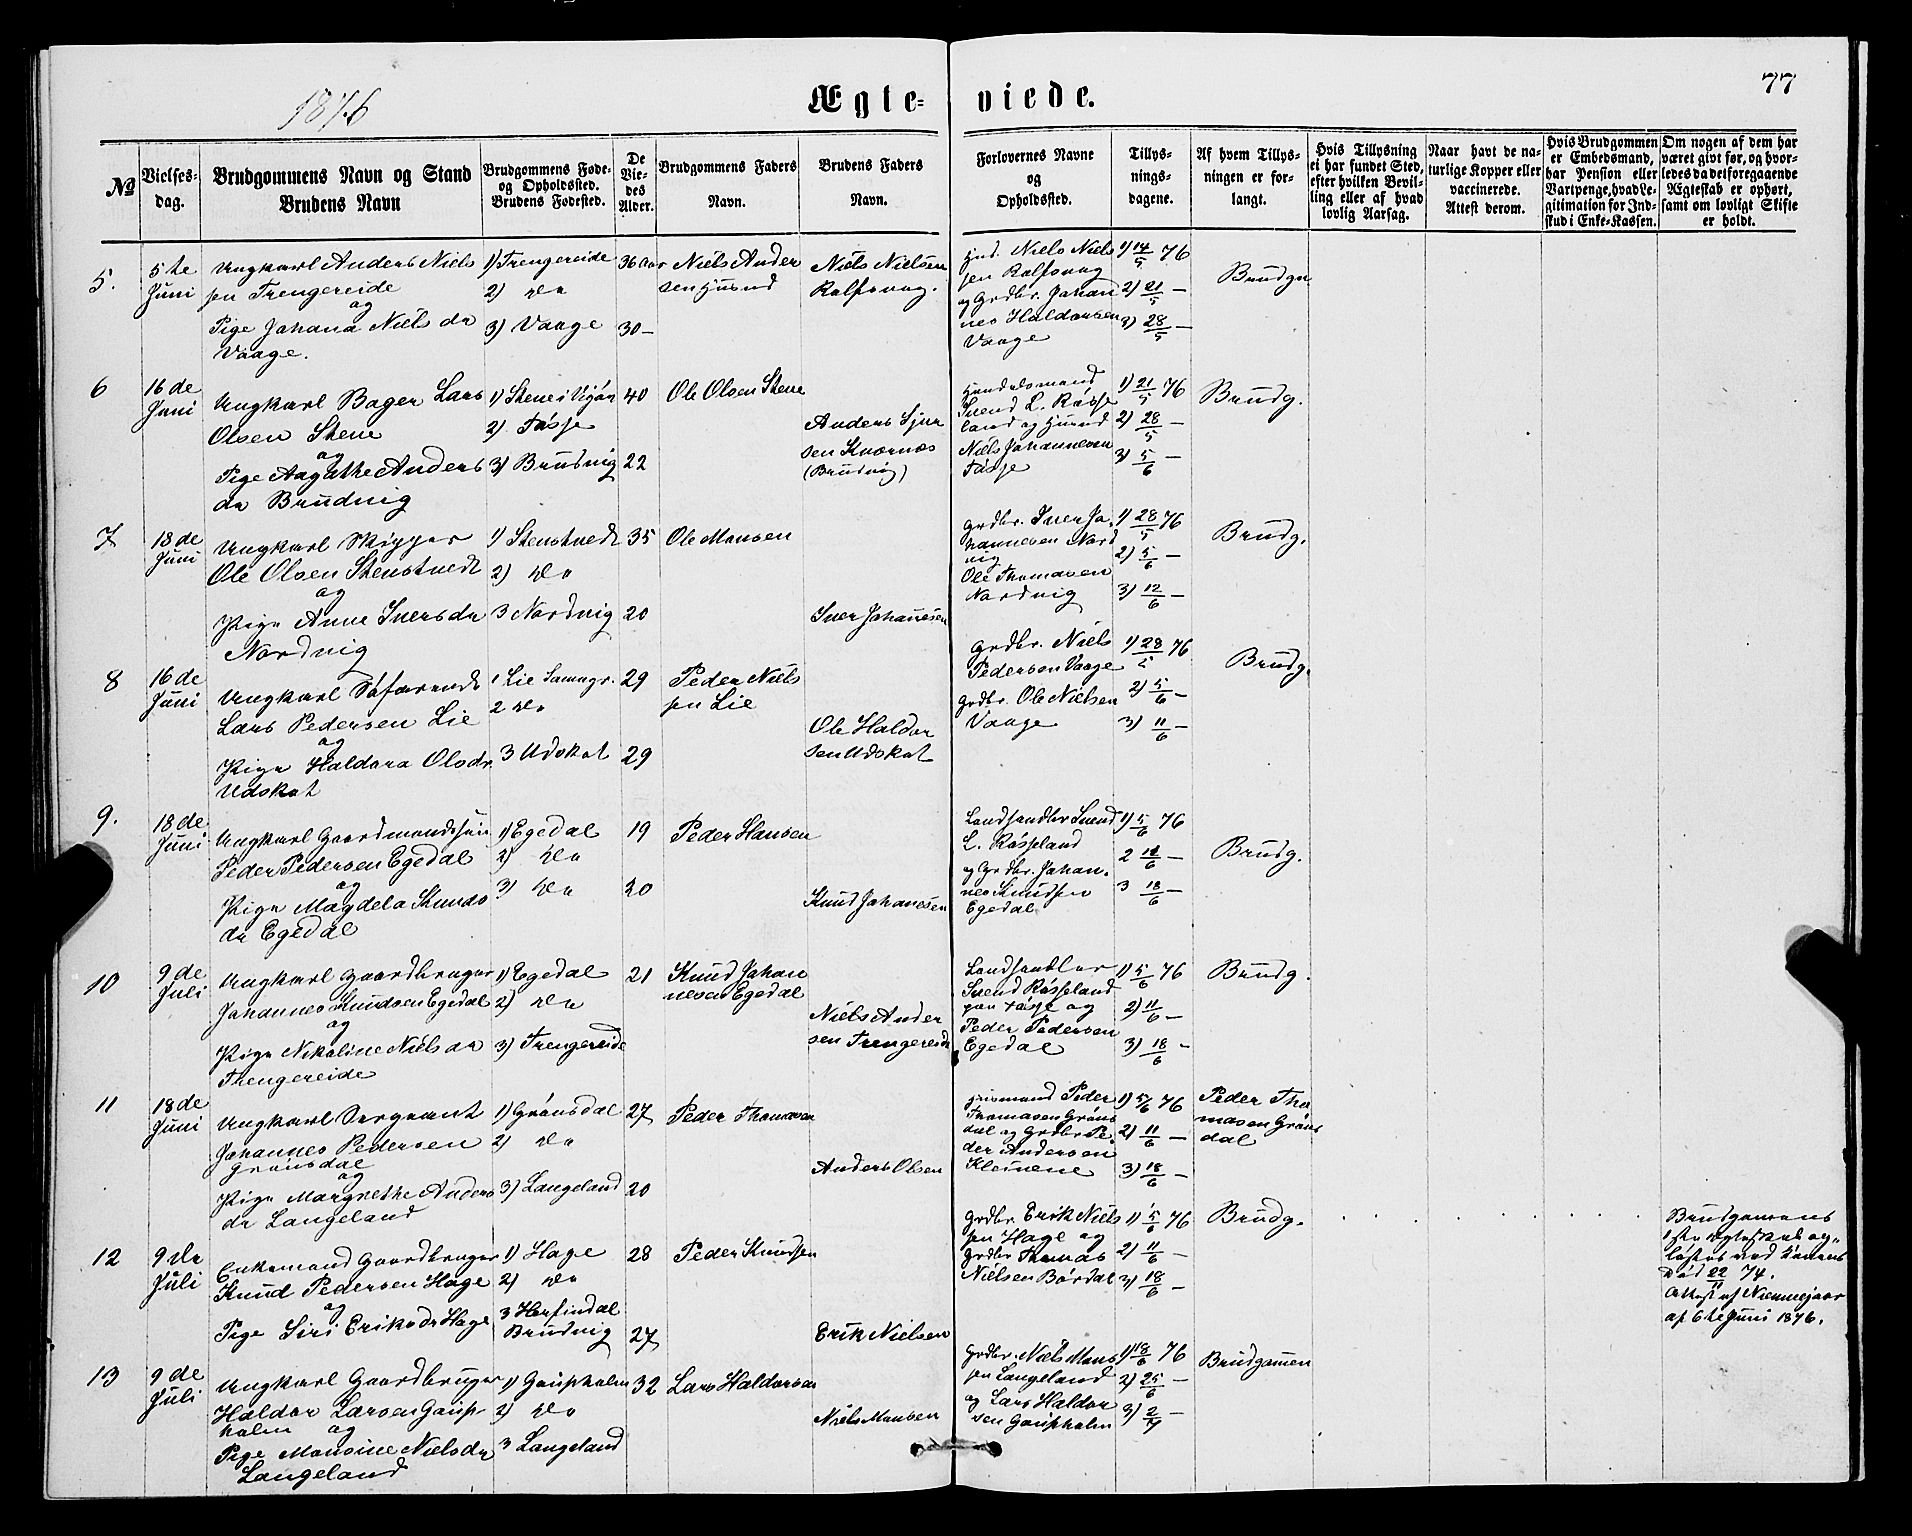 1876
Ægte-
viede.
77
No
Vielses-
dag.
Brudgommens Navn og Stand
Brudens Navn
Brudgommens Føde-
og Opholdssted.
Brudens Fødested.
De
Vie-
des
Alder.
Brudgommens Faders
Navn.
Brudens Faders
Navn.
Forlovernes Navne
og
Opholdssted.
Tillys-
nings-
dagene.
Af hvem Tillys-
ningen er for-
langt.
Hvis Tillysning
ei har fundet Sted,
efter hvilken Bevil-
ling eller af hvad
lovlig Aarsag.
Naar havt de na-
turlige Kopper eller
vaccinerede.
Attest derom.
Hvis Brudgommen
er Embedsmand,
har Pension eller
Vartpenge, hvad Le-
gitimation for Ind-
skud i Enke-Kassen.
Om nogen af dem har
været givt før, og hvor-
ledes da det foregaaende
Ægteskab er ophørt,
samt om lovligt Skifte
er holdt.
5.
5te
Juni
Ungkarl Anders Niels
sen Trengereide
og
Pige Johana Niels dr
Vaage.
1) Trengereide
2) do
3) Vaage
36 aar
30 —
Niels Ander
sen Husmd
Niels Nielsen
Rolfsvog.
Hmd. Niels Niels
sen Rolfsvog
og Grdbr. Johan
nes Haldorsen
Vaage
1) 14/5 76
2) 21/5 —
3) 28/5 —
Brudgn
6
16de
Juni
Ungkarl Bager Lars
Olsen Stene
og
Pige Aagathe Anders
dr Brudvig
1) Stene i Vigør
2) Tøsse
3) Brudvig
40
22
Ole Olsen Stene
Anders Sjur
sen Knarnes
(Brudvig)
Handelsmand
Svend L. Røsse
land og Husmd
Niels Johannesen
Tøsse
1) 21/5 76
2) 28/5 —
3) 5/6 —
Brudg.
7
18de
Juni
Ungkarl Skipper
Ole Olsen Stenstvedt
og
Pige Anne Iversdr
Nordvig
1) Stenstvedt
2) do
3 Nordvig
35
20
Ole Monsen
Iver Johanesen
Grdbr. Iver Jo
hannesen Nord
vig
Ole Thomasen
Nordvig
1) 28/5 76
2) 5/6 —
3) 12/6 —
Brudg.
8
16de
Juni
Ungkarl Søfarende
Lars Pedersen Lie
og
Pige Haldora Olsdr.
Udskot
1 Lie Samngr.
2 do
3 Udskot
29
29
Peder Niels
sen Lie
Ole Haldor
sen Udskot
Grdbr. Niels
Pedersen Vaage
Grdbr. Ole Nielsen
Vaage
1) 28/5 76
2) 5/6 —
3) 11/6 —
Brudg.
9.
18de
Juni
Ungkarl Gaardmandssøn
Peder Pedersen Egedal
og
Pige Magdela Knuds
dr Egedal
1) Egedal
2) do
3) do
19
20
Peder Hansen
Knud Johanesen
Landhandler Svend
L. Røsseland
og Grdbr. Johan
nes Knudsen
Egedal
1) 5/6 76
2 11/6 —
3 18/6 —
Brudg.
10
9de
Juli
Ungkarl Gaardbruger
Johannes Knudsen Egedal
og
Pige Nikoline Niels dr
Trengereide
1) Egedal
2) do
3) Trengereide
21
Knud Johan
nesen Egedal
Niels Ander
sen Trengereide
Landhandler
Svend Røsseland
paa Tøsse og
Peder Pedersen
Egedal
1) 5/6 76
2) 11/6 —
3) 18/6 —
Brudg.
11
18de
Juni
Ungkarl Sergeant
Johannes Pedersen
Grønsdal
og
Pige Margrethe Anders
dr Langeland
1) Grønsdal
2) do
3) Langeland
27
20
Peder Thomasen
Anders Olsen
Husmand Peder
Thomasen Grøns
dal og Grdbr Pe
der Andersen
Kleivene
1) 5/6 76
2) 11/6 —
3) 18/6 —
Peder Tho
masen Grøns
dal
12
9de
Juli
Enkemand Gaardbruger
Knud Pedersen Hage
og
Pige Siri Eriksdr Hage
1) Hage
2) do
3 Herfindal
Brudvig
28
27
Peder Knudsen
Erik Nielsen
Grdbr. Erik Niels
sen Hage og
Grdbr Thomas
Nielsen Børdal
1) 5/6 76
2) 11/6 —
3) 18/6 —
Brudg.
Brudgomens
1ste Ægteskab op-
løstes ved Konens
Død 22/11 74.
Attest af
af 6te Juni 1876.
13
9de
Juli
Ungkarl Gaardbruger
Haldor Larsen Gaup-
holm og
Pige Monsine Nielsdr
Langeland
1) Gaupholm
2) do
3 Langeland
32
Lars Haldorsen
Niels Monsen
Grdbr. Niels Mons
sen Langeland
og Lars Haldor
sen Gaupholm
1) 18/6 76
2) 25/6 —
3) 2/7 —
Brudgomen